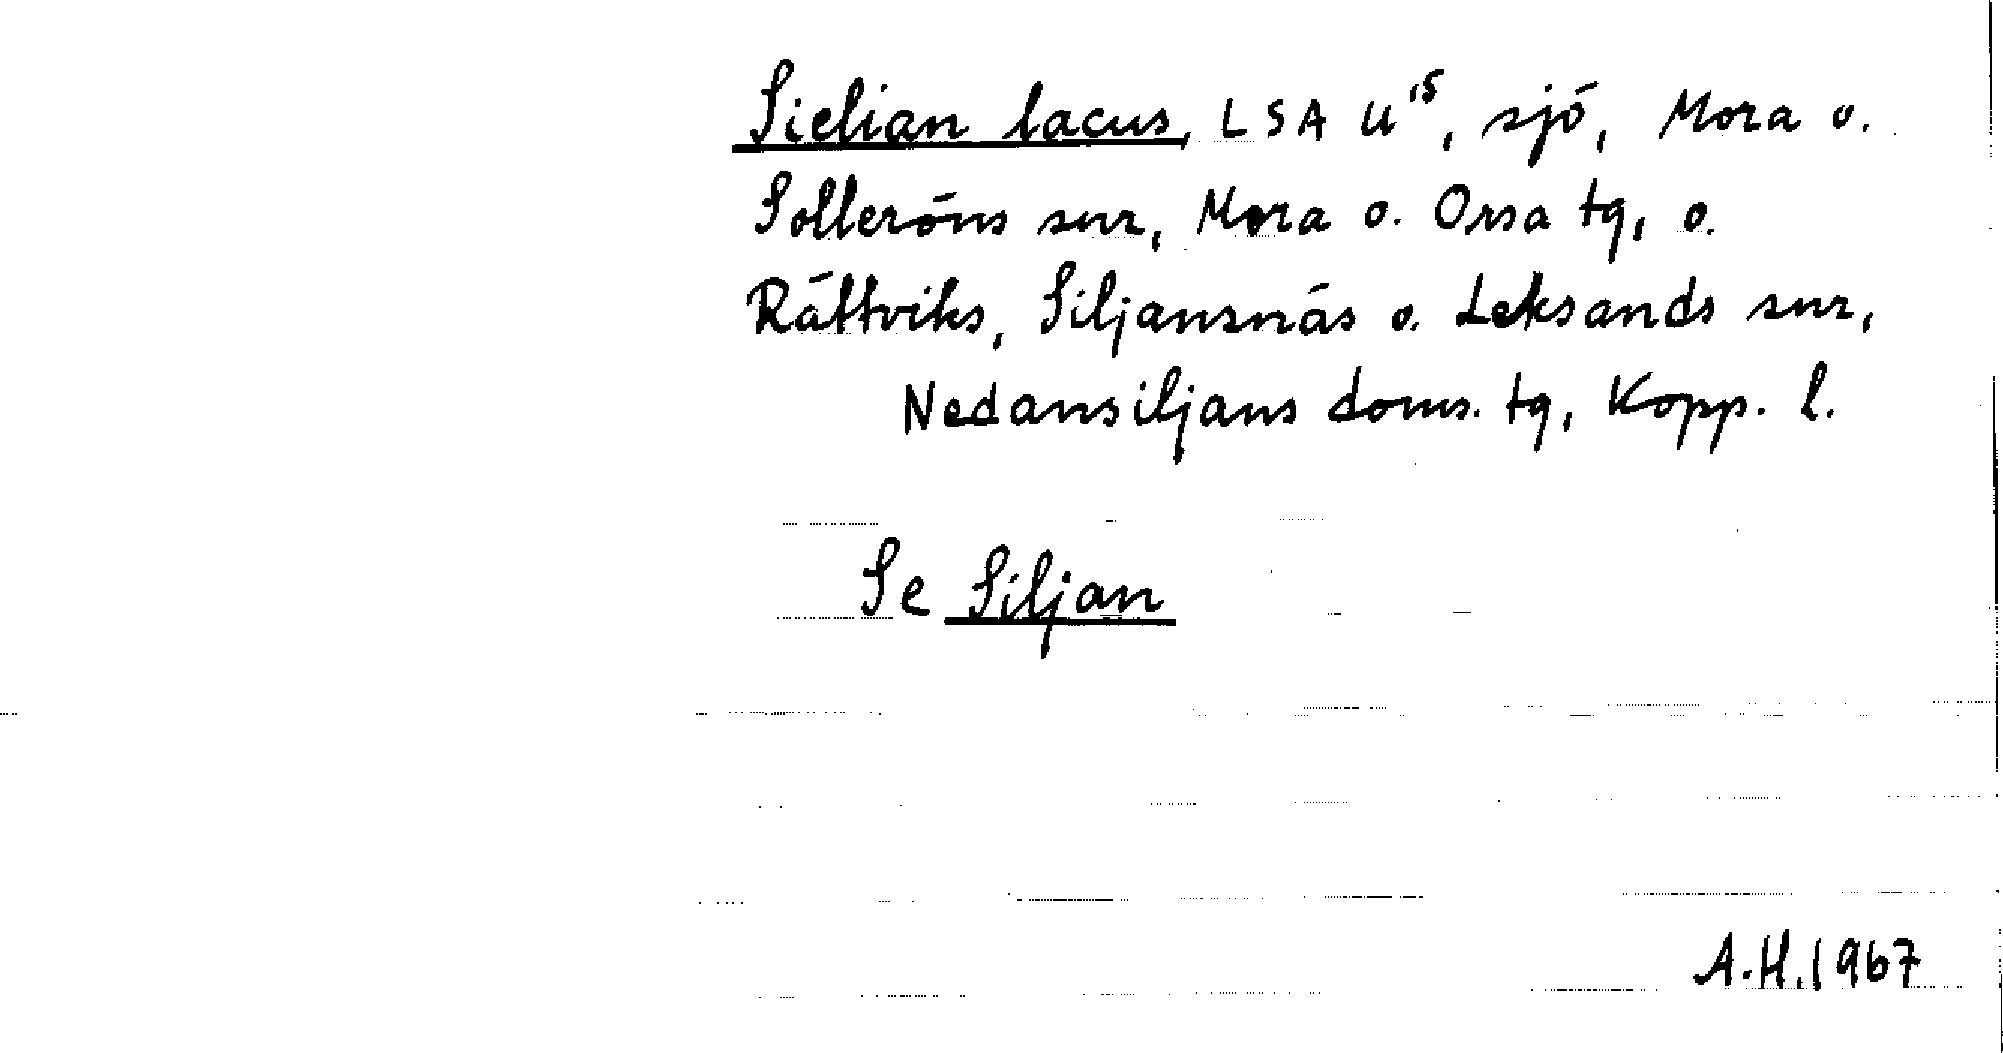 Sielian lacus, LSA U¹⁵, sjö, Mora o.
Solleröns snr, Mora o. Orsa tg, o.
Rättviks, Siljansnäs o. Leksands snr,
Nedansiljans doms. tg, Kopp. l.
Se Siljan
A.H. 1967